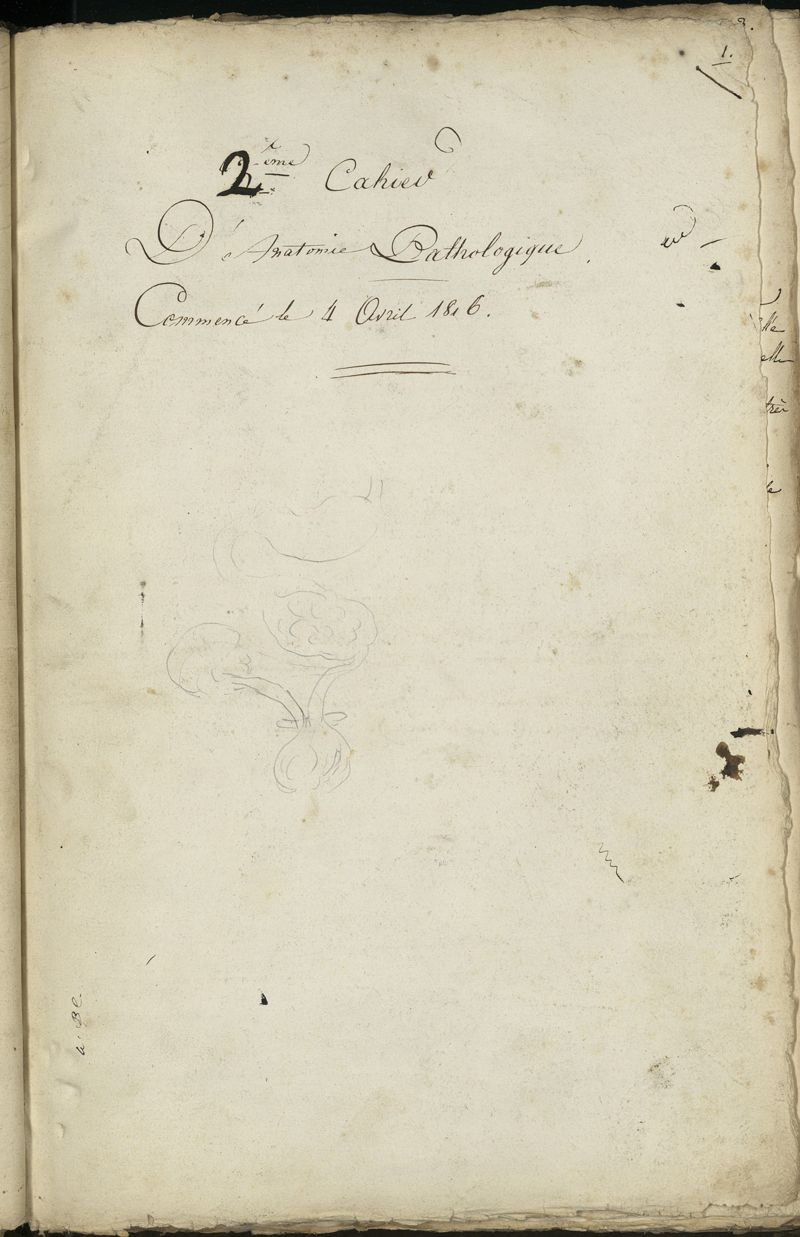 1.
2ème Cahier
D'Anatomie Pathologique.
Commencé le 4 Avril 1816.